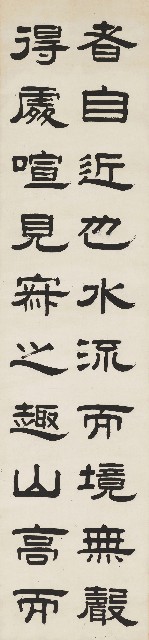 者自近也水流而境無聲
得處喧見寂之趣山高而